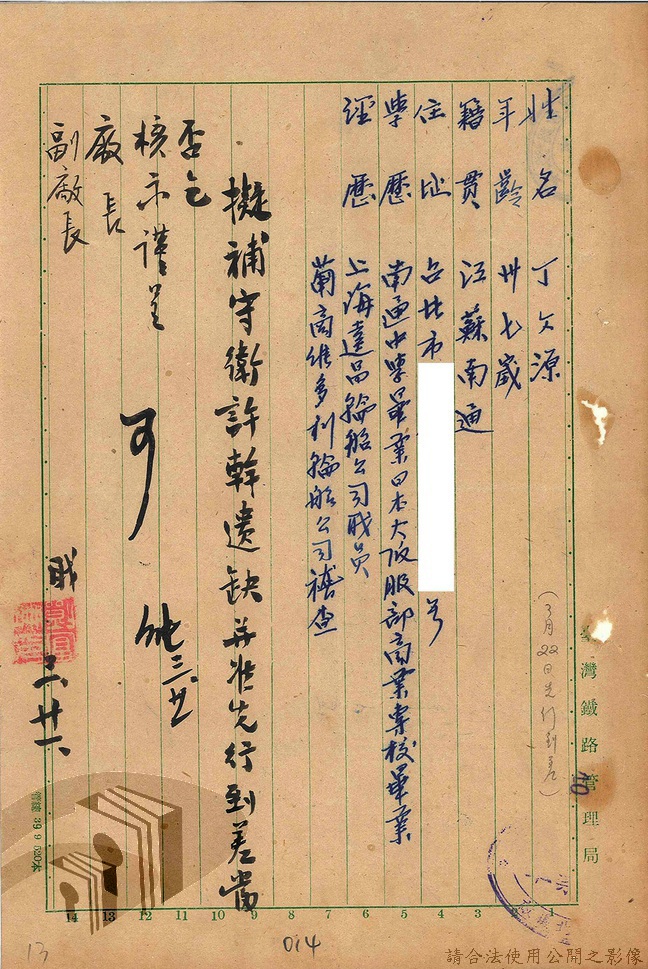 姓名 丁文源
年齡 卅七歲
籍貫 江蘇南通
住址 台北市 号
學歷 南通中學畢業日本大阪服部商業專校畢業
經歷 上海達昌輪船公司職員
葡商維多利輪船公司稽查
擬補守衛許幹遺缺并准先行到差當
否乞
核示謹呈
廠長
副廠長
可
三、廿
職
三、廿一、
(3月22日先行到差)
臺灣鐵路管理局
10
14 13 12 11 10 9 8 7 6 5 4 3 1
13
014
請合法使用公開之影像